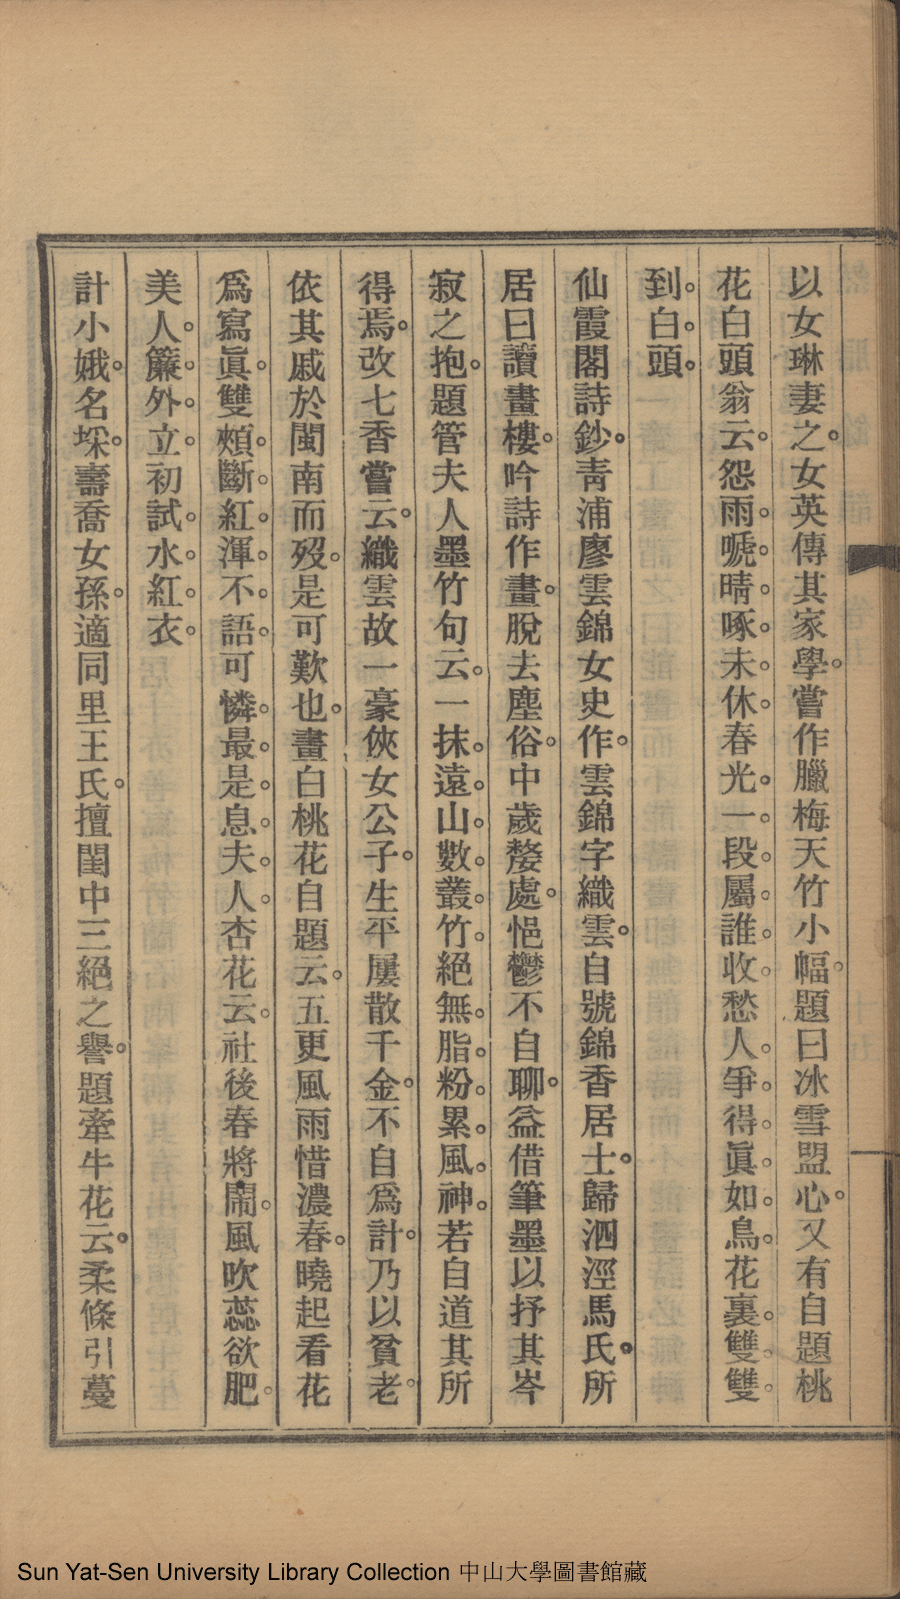 以女琳妻之。女英傳其家學。嘗作臘梅天竹小幅。題曰冰雪盟心。又有自題桃
花白頭翁云。怨雨。嗁。晴。啄。未。休。春光。一。段。屬。誰。收。愁人。爭。得。眞。如。鳥。花裏。雙。雙。
到。白。頭。
仙霞閣詩鈔。靑浦廖雲錦女史作。雲錦字織雲。自號錦香居士。歸泗涇馬氏。所
居曰讀畫樓。吟詩作畫。脫去塵俗。中歲嫠處。悒鬱不自聊。益借筆墨以抒其岑
寂之抱。題管夫人墨竹句云。一抹。遠。山。數。叢。竹。絕無。脂。粉。累。風。神。若自道其所
得焉。改七香嘗云。織雲故一豪俠女公子。生平屢散千金。不自爲計。乃以貧老。
依其戚於閩南而歿。是可歎也。畫白桃花自題云。五更風雨惜濃春。曉起看花
爲寫眞。雙頰。斷。紅。渾。不。語。可憐。最。是。息。夫。人。杏花云。社後春將鬧。風吹蕊欲肥。
美人。簾。外。立。初試。水。紅。衣。
計小娥。名埰。壽喬女孫。適同里王氏。擅閨中三絕之譽。題牽牛花云。柔條引蔓
Sun Yat-Sen University Library Collection 中山大學圖書館藏